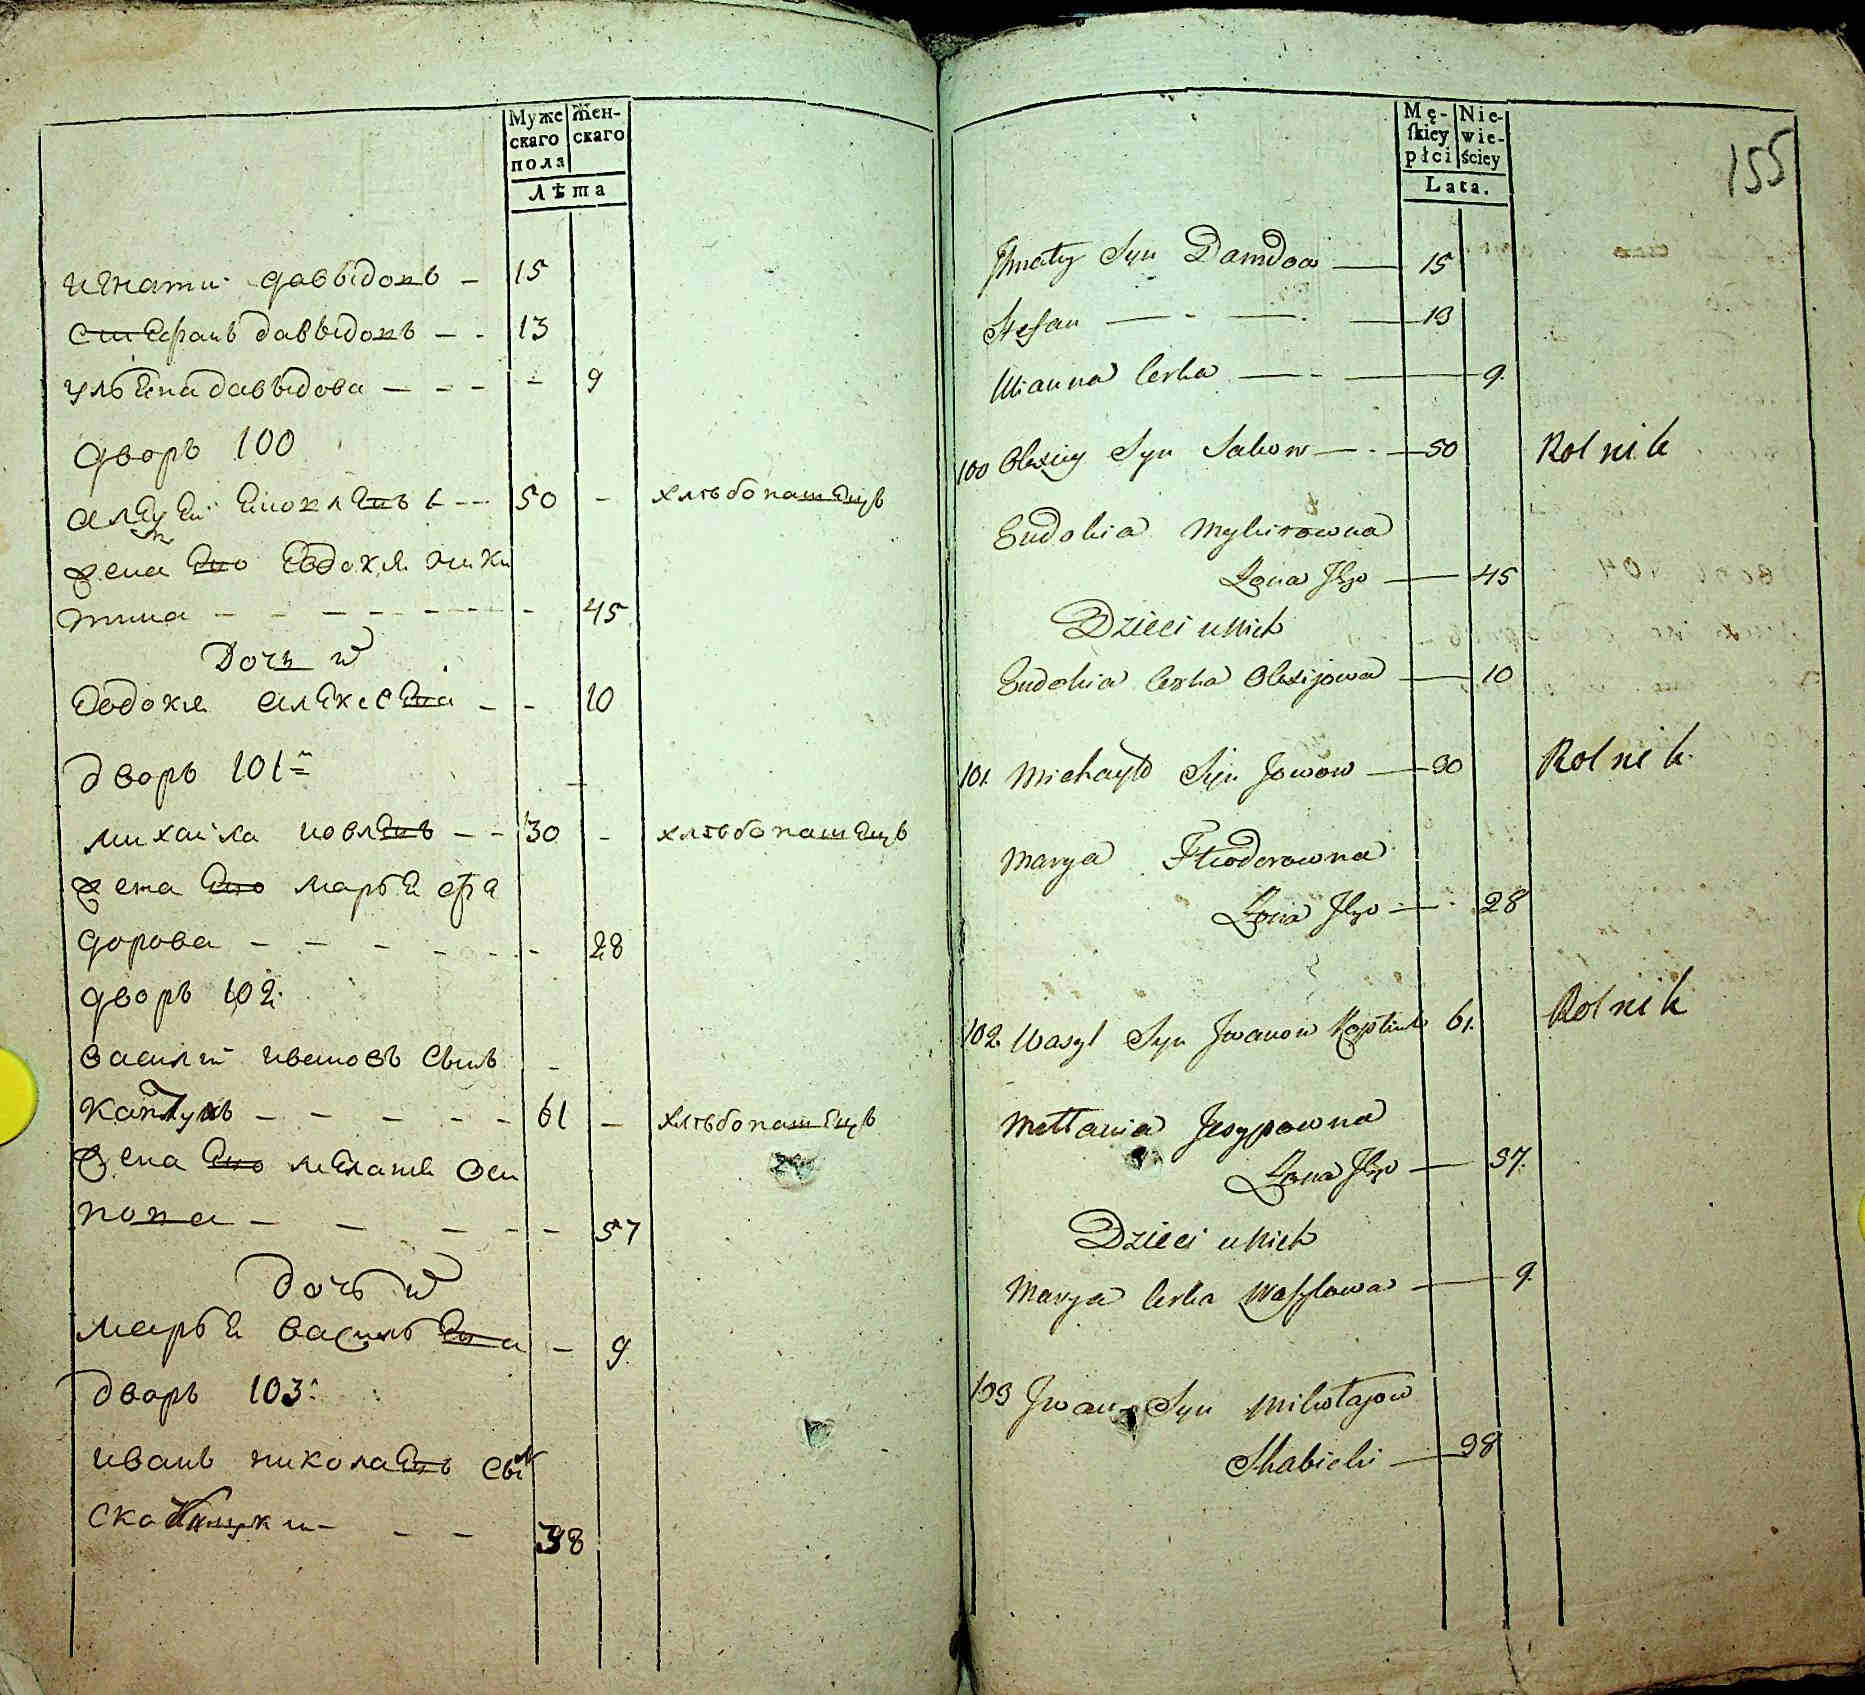 Муже
скаго
пола
Жен-
скаго
Лѣта
игнати давыдовъ — 15
стефанъ давыдовъ — - 13
ульена давыдова — - - - 9
дворъ 100
50 - хлѣбопашецъ
жена ево Евдокия ники
тина - - - - - - - - 45
Дочь
Евдокия алексева - - 10
дворъ 101
михаила иовлевъ - - 30 - хлѣбопашецъ
жена ево марья фиа
дорова - - - - - - 28
дворъ 102
василий ивановъ сынъ -
каптухъ - - - - - 61 - хлѣбопашецъ
жена ево меланя оси
пова - - - - - 57
дочь
марья васильева - 9
дворъ 103
иванъ николаевъ сынъ
38
Mę-
ſkiey
płci
Nie-
wie-
ściey
Lata.
155
Jhnaty Syn Dawidow — 15
Stefan — - — - — 13
Ulianna Corka — - — 9
100 Olexiey Syn Jakow — - — 50 Rolnik
Eudokia Mykitowna
Żona Jego — 45
Dzieci u Nich
Eudokia Corka Olexijowa — 10
101. Michayło Syn Jowow — 30 Rolnik
Marya Fteodorowna
Żona Jego — - 28
102 Wasyl Syn Jwanow 61. Rolnik
Mełłania Jesypowna
Żona Jego — 37.
Dzieci u Nich
Marya Corka Wasylowa — 9.
103 Jwan Syn Mikołajow
Skabicki — 38